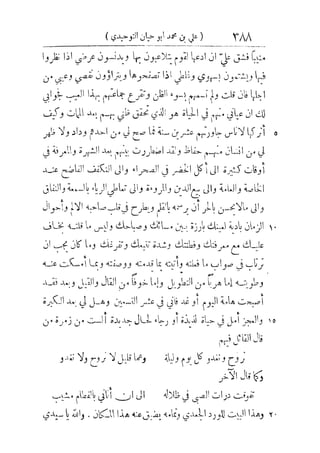 ٣٨٨ ( علي بن محمد ابو حيان التوحيدي )
مينا فشق علي ان ادعها لقوم يتلاعبون بها ويدنسون عرضي اذا نظروا
فيها ويشمتون بسهوي وغلطي اذا تصفحوها ويتراؤون نقصي وعيبي من
اجلها فان قلت ولم تسمهم بسوء الظن وتقرع جماعتهم بهذا العيب فجوابي
لك ان عياني منهم في الحياة هو الذي تحقق ظني بهم بعد الممات وكيف
٥ أتركها لأناس جاورتهم عشرين سنة فما صح لي من احدهم وداد ولا ظهر
لي من انسان منهم حفاظ ولقد اضطررت بينهم بعد الشهرة والمعرفة في
أوقات كثيرة الى أكل الخضر في الصحراء والى التكفف الفاضح عند
الخاصة والعامة والى بيع الدين والمروءة والى تعاطي الرياء بالسمعة والنفاق
والى مالا يحسن بالحر أن يرسمه بالقلم ويطرح في قلب صاحبه الألم وأحوال
١٠ الزمان بادية لعينك بارزة بين مسائك وصباحك وليس ما قلته بخاف
عليك مع معرفتك وفطنتك وشدة تتبعك وتفرغك وما كان يجب ان
ترتاب في صواب ما فعلته وأتيته بما قدمته ووصفته وبما أمسكت عنه
وطويته إما هربا من التطويل وإما خوفا من القال والقيل وبعد فقد
أصبحت هامة اليوم أو غد فاني في عشر التسعين وهل لي بعد الكبرة
١٥ والعجز أمل في حياة لذيذة أو رجاء لحال جديدة ألست من زمرة من
قال القائل فيهم
نروح ونغدو كل يوم وليلة وعما قليل لا نروح ولا نغدو
وكما قال الآخر
تفوقت درات الصبى في ظلاله الى ان أتاني بالفطام مشيب
٢٠ وهذا البيت للورد الجعدي وتمامه يضيق عنه هذا المكان . والله يا سيدي